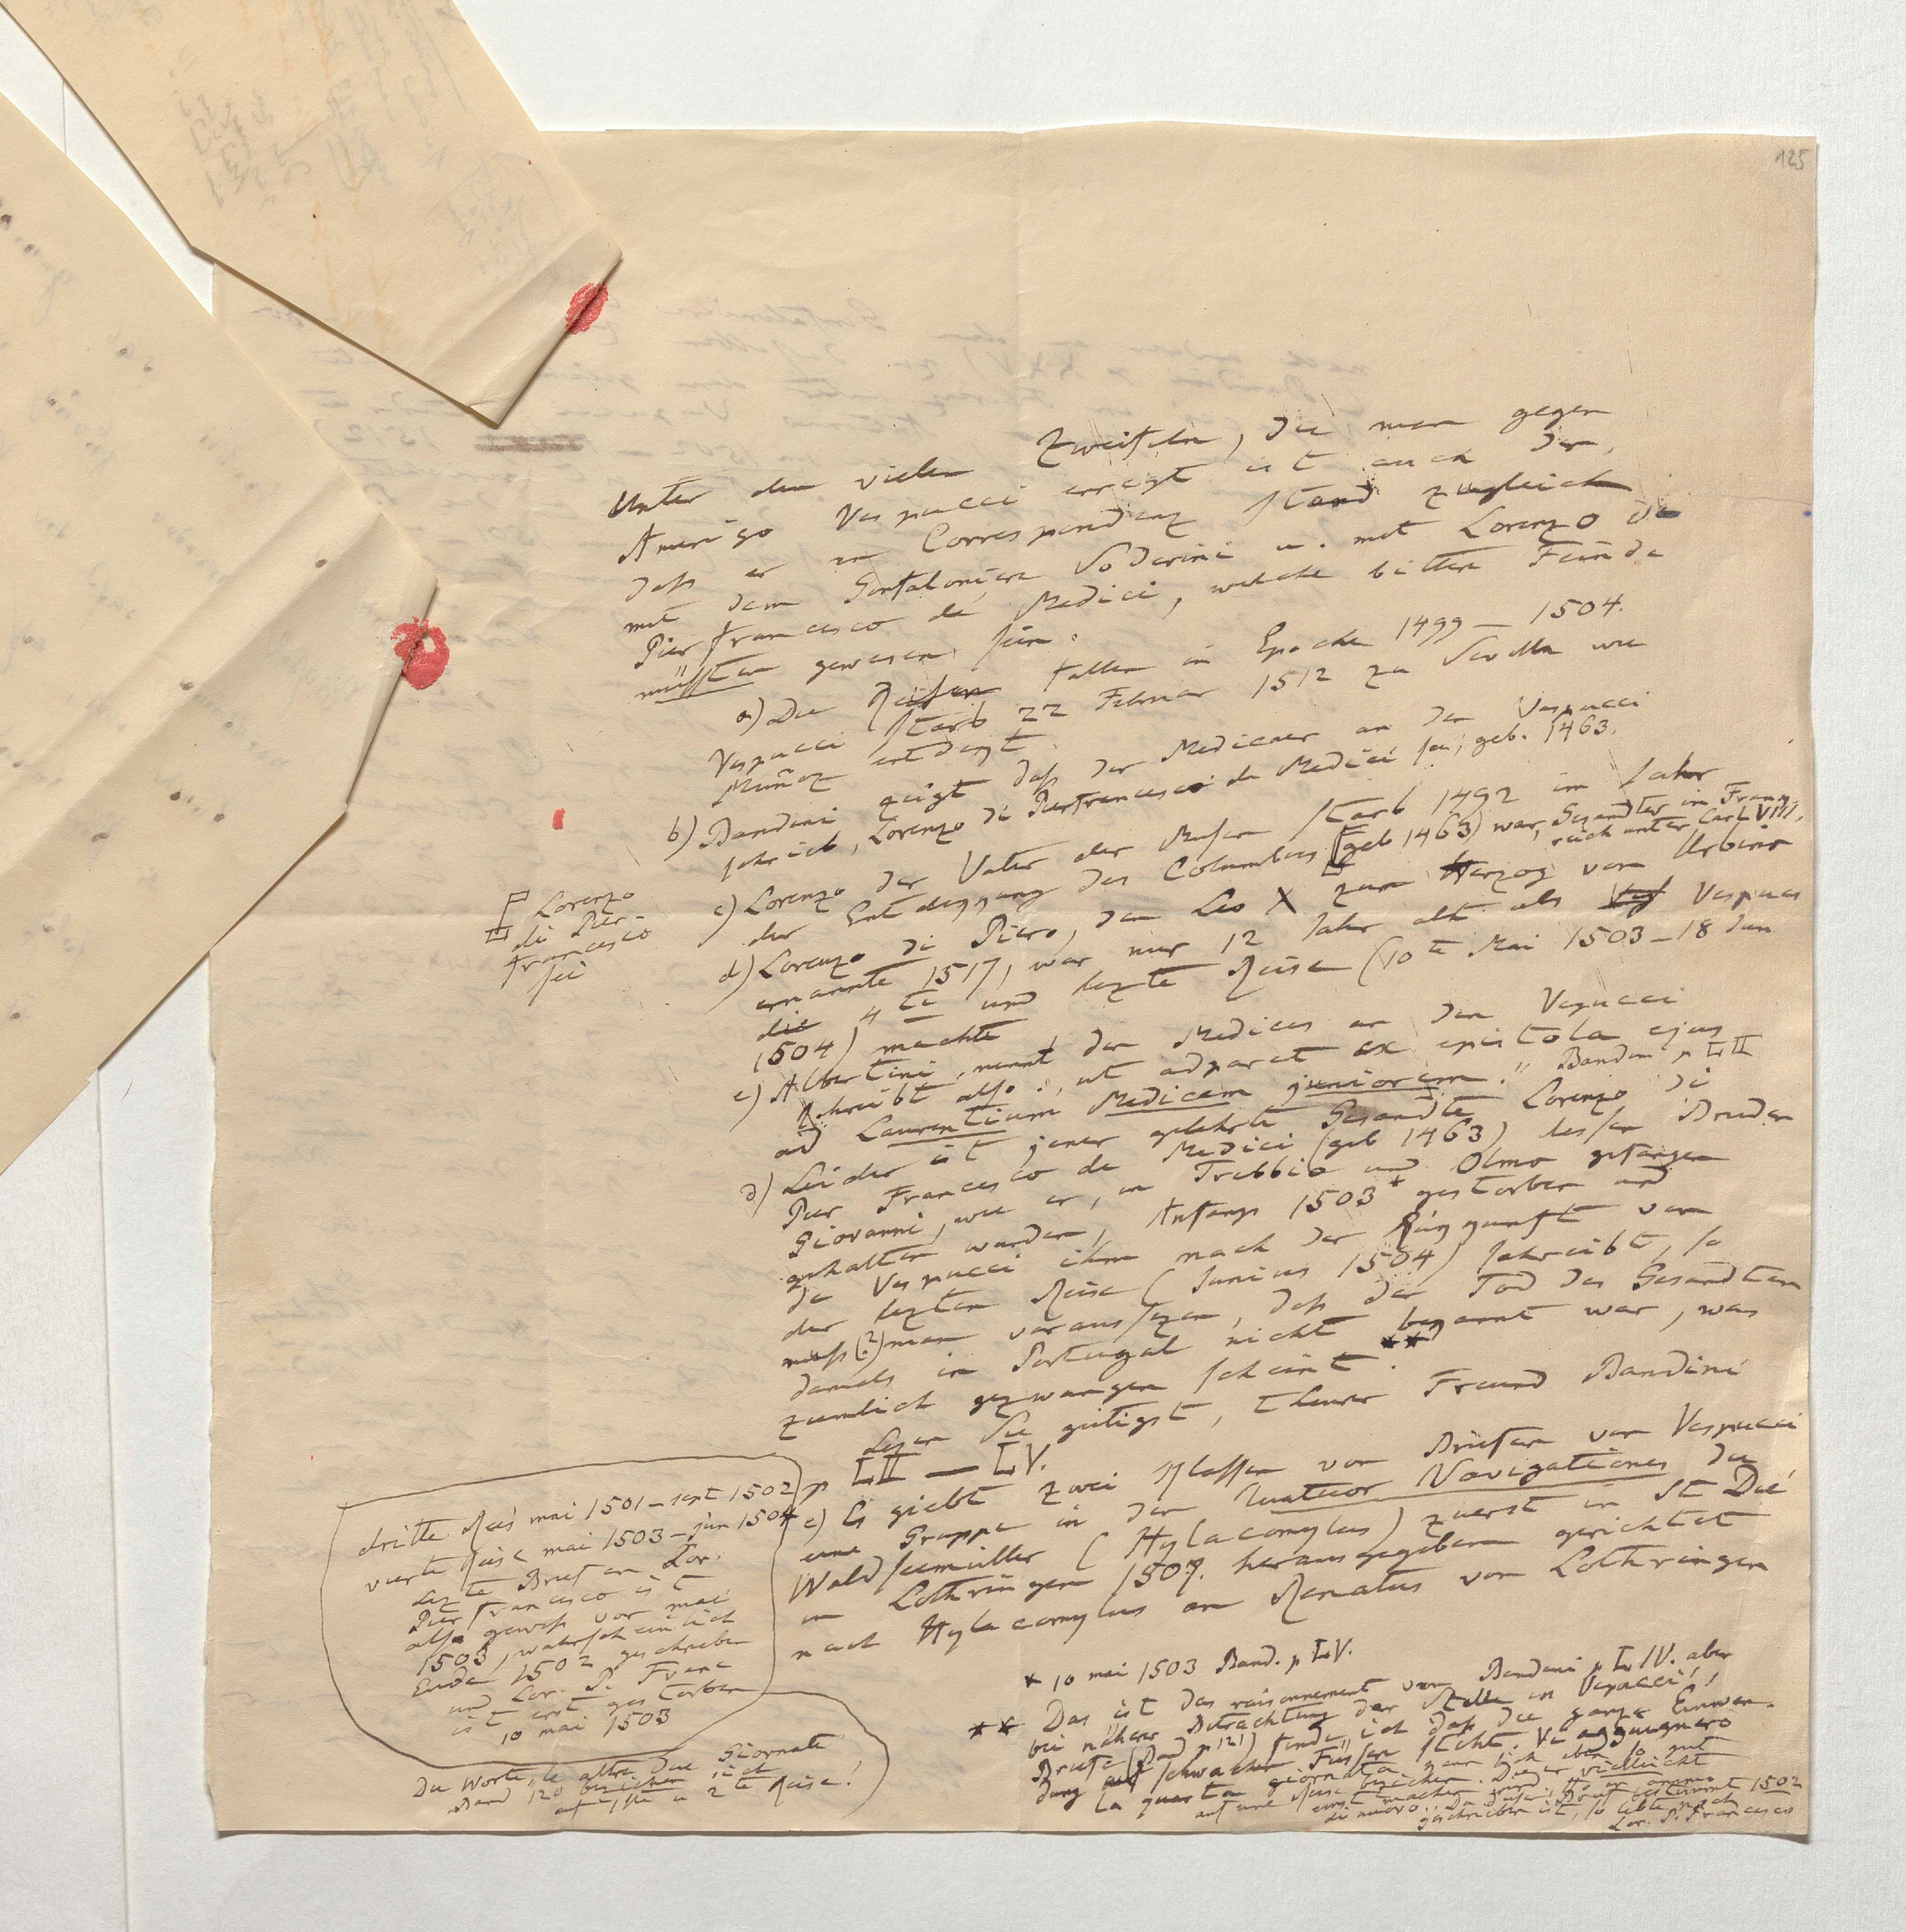 125
Unter den vielen Zweifeln, die man gegen
Amerigo Vespucci erregt ist auch der,
daß er in Correspondenz stand zugleich
mit dem Gonfaloniere Soderini u. mit Lorenzo di
Pierfrancesco de Medici, welche bittere Feinde
müssten gewesen sein.
a) Die Reisen fallen in Epoche 1499 – 1504.
Vespucci starb 22 Februar 1512 zu Sevilla wie
Muñoz entdeckt.
b) Bandini zeigt daß der Mediceer an den Vespucci
schrieb, Lorenzo di Pierfrancesco de Medici sei, geb. 1463.
Lorenzo
di Pier-
francesco
sei
c) Lorenzo der Vater der Musen starb 1492 im Jahr
der Entdeckung des Columbus (geb 1463) war Gesandter in Frank
reich unter Carl VIII.
d) Lorenzo di Piero, den Leo X zum Herzog von Urbino
ernannte 1517, war nur 12 Jahr alt als Vespucci
die 4te und lezte Reise (10te Mai 1503 – 18 Jun
1504) machte
e) Albertini nennt den Medices an den Vespucci
schreibt also: „ut adparet ex epistola ejus
ad Laurentium Medicem juniorem." Bandini p LII
d) Leider ist jener gelehrte Gesandte Lorenzo di
Pier Francesco de Medici (geb 1463) dessen Bruder
Giovanni, wie er, in Trebbio und Olmo gefangen
gehalten wurden, Anfangs 1503* gestorben und
da Vespucci ihm nach der Rückkunft von
der lezten Reise (Junius 1504) schreibt, so
muß (?) man voraussezen, daß der Tod des Gesandten
damals in Portugal nicht bekannt war, was
ziemlich gezwungen scheint. **)
Lesen Sie gütigst, theurer Freund Bandini
p LII – LV.
e) Es giebt zwei Klassen von Briefen von Vespucci
eine Gruppe in den Quatuor Navigationes die
Waldseemüller (Hylacomylus) zuerst in St Dié
in Lothringen 1507. herausgegeben gerichtet
nach Hylacomylus an Renatus von Lothringen
dritte Reis mai 1501 – sept 1502
vierte Reise mai 1503 – jun 1504
Lezte Brief an Lor.
Pier Francesco ist
also gewiß vor mai
1503, wahrscheinlich
Ende 1502 geschrieben
und Lor. P. Franc
ist erst gestorben
10 mai 1503
Die Worte „le altre due Giornate
Band 120 beziehen sich
auf 1ste u 2te Reise!
* 10 mai 1503 Band. p LV.
** Das ist das raisonnement von Bandini p LIV. aber
bei näherer Betrachtung der Stelle in Vespucci's
Briefe (Band p 121) finde ich daß die ganze Einwen-
dung auf schwachen Füssen steht.
la quarta giornata kann sich eben so gut
auf eine Reise beziehen. Die er vielleicht
einst machen wird.
di nuovo. Da dieser Brief bestimmt 1502
geschrieben ist, so lebte noch
Lor. P. Francesco